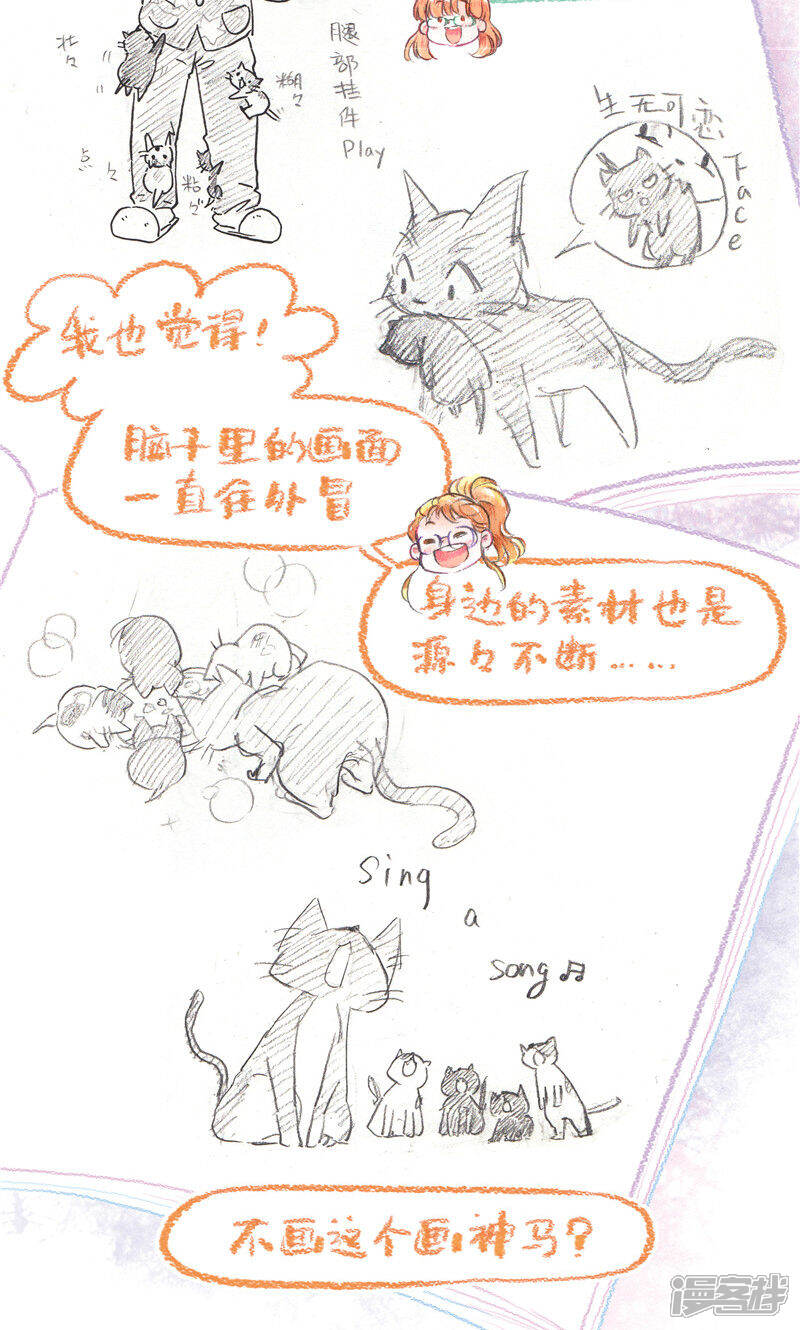 壮々
糊々
点々
粘々
腿部挂件
Play
生无可恋
Face
我也觉得!
脑子里的画面
一直往外冒
身边的素材也是
源々不断……
Sing
a
song♫
不画这个画神马?
漫客栈